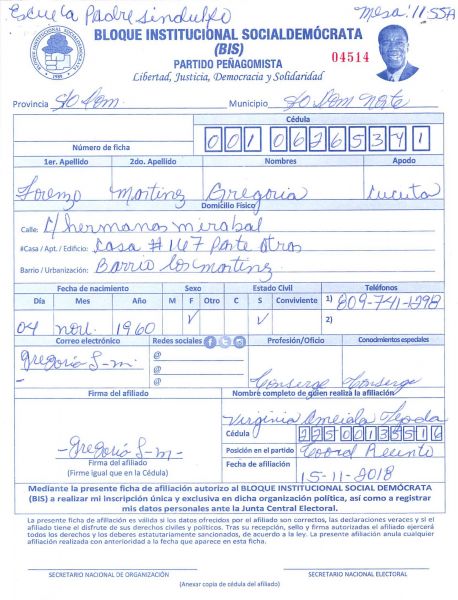 Escuela Padre Sindulfo Mesa: 11.55A
BLOQUE INSTITUCIONAL SOCIALDEMÓCRATA
(BIS)
PARTIDO PEÑAGOMISTA
04514
Libertad, Justicia, Democracia y Solidaridad
Provincia Sto Dom. Municipio Sto Dom Norte
Cédula
Número de ficha 001 0626534 1
1er. Apellido 2do. Apellido Nombres Apodo
Lorenzo Martinez Gregoria Cucuta
Domicilio Físico
Calle: C/ hermanas mirabal
#Casa / Apt. / Edificio: Casa # 167 Parte Atras
Barrio / Urbanización: Barrio los Martinez
Fecha de nacimiento Sexo Estado Civil Teléfonos
Día Mes Año M F Otro C S Conviviente 1) 809-741-1298
04 nov. 1960 V V 2)
Correo electrónico Redes sociales Profesión/Oficio Conocimientos especiales
Gregoria L-m. @
@
@ Conserge Conserge
Firma del afiliado Nombre completo de quien realiza la afiliación
Virginia Tejada
Cédula 22500138516
-Gregoria L-m- Posición en el partido Coord Recinto
Firma del afiliado
(Firme igual que en la Cédula) Fecha de afiliación 15-11-2018
Mediante la presente ficha de afiliación autorizo al BLOQUE INSTITUCIONAL SOCIAL DEMÓCRATA
(BIS) a realizar mi inscripción única y exclusiva en dicha organización política, así como a registrar
mis datos personales ante la Junta Central Electoral.
La presente ficha de afiliación es válida si los datos ofrecidos por el afiliado son correctos, las declaraciones veraces y si el
afiliado tiene el disfrute de sus derechos civiles y políticos. Tras su recepción, sello y firma autorizadas el afiliado ejercerá
todos los derechos y los deberes estatutariamente sancionados, de acuerdo a la ley. La presente afiliación anula cualquier
afiliación realizada con anterioridad a la fecha que aparece en esta ficha.
SECRETARIO NACIONAL DE ORGANIZACIÓN SECRETARIO NACIONAL ELECTORAL
(Anexar copia de cédula del afiliado)